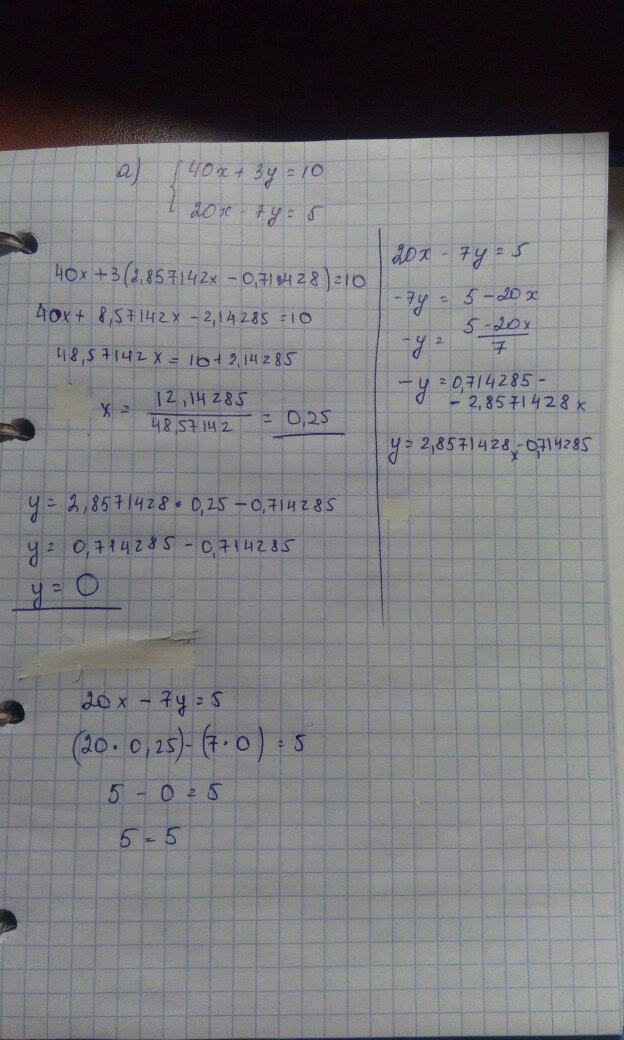 a) { 40x + 3y = 10
20x - 7y = 5
40x + 3(2,857142x - 0,71428) = 10
40x + 8,57142x - 2,14285 = 10
48,57142x = 10 + 2,14285
x = 12,14285 / 48,57142 = 0,25
y = 2,8571428 · 0,25 - 0,714285
y = 0,714285 - 0,714285
y = 0
20x - 7y = 5
-7y = 5 - 20x
-y = 5 - 20x / 7
-y = 0,714285 -
- 2,8571428x
y = 2,8571428x - 0,714285
20x - 7y = 5
(20 · 0,25) - (7 · 0) = 5
5 - 0 = 5
5 = 5